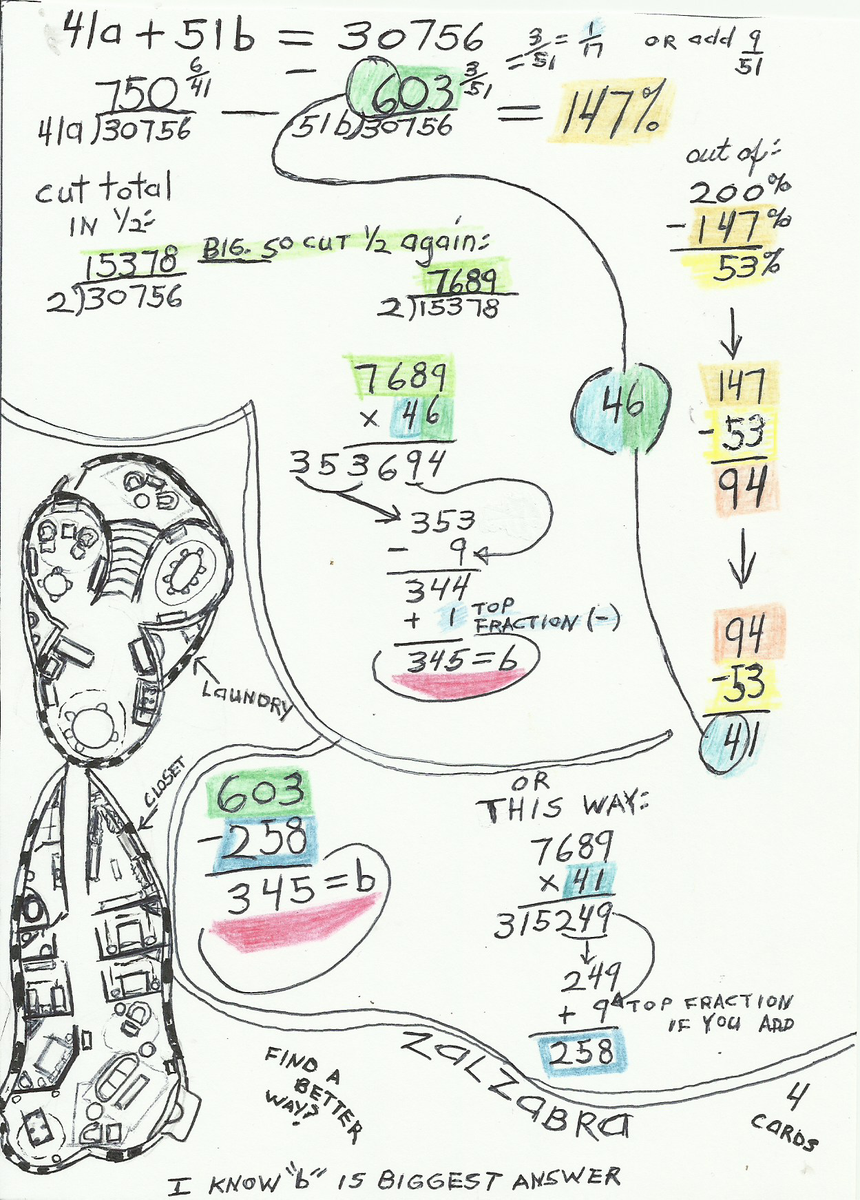 41a + 51b = 30756
= 3/51 = 1/17 OR add 9/51
750 6/41 — 603 3/51 = 147%
41a)30756 51b)30756
cut total
IN 1/2:
BIG. SO CUT 1/2 again:
15378
2)30756
7689
2)15378
out of:
200%
- 147%
53%
7689
x 46
353694
353
- 9
344
+ 1 TOP
FRACTION (-)
345 = b
46
147
- 53
94
94
- 53
41
LAUNDRY
CLOSET
603
- 258
345 = b
OR
THIS WAY:
7689
x 41
315249
249
+ 9 TOP FRACTION
IF YOU ADD
258
ZALZABRA
FIND A
BETTER
WAY?
4
CARDS
I KNOW "b" IS BIGGEST ANSWER